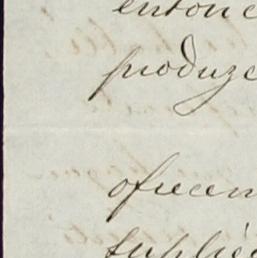 entonc
produzc
ofrecen
suplic